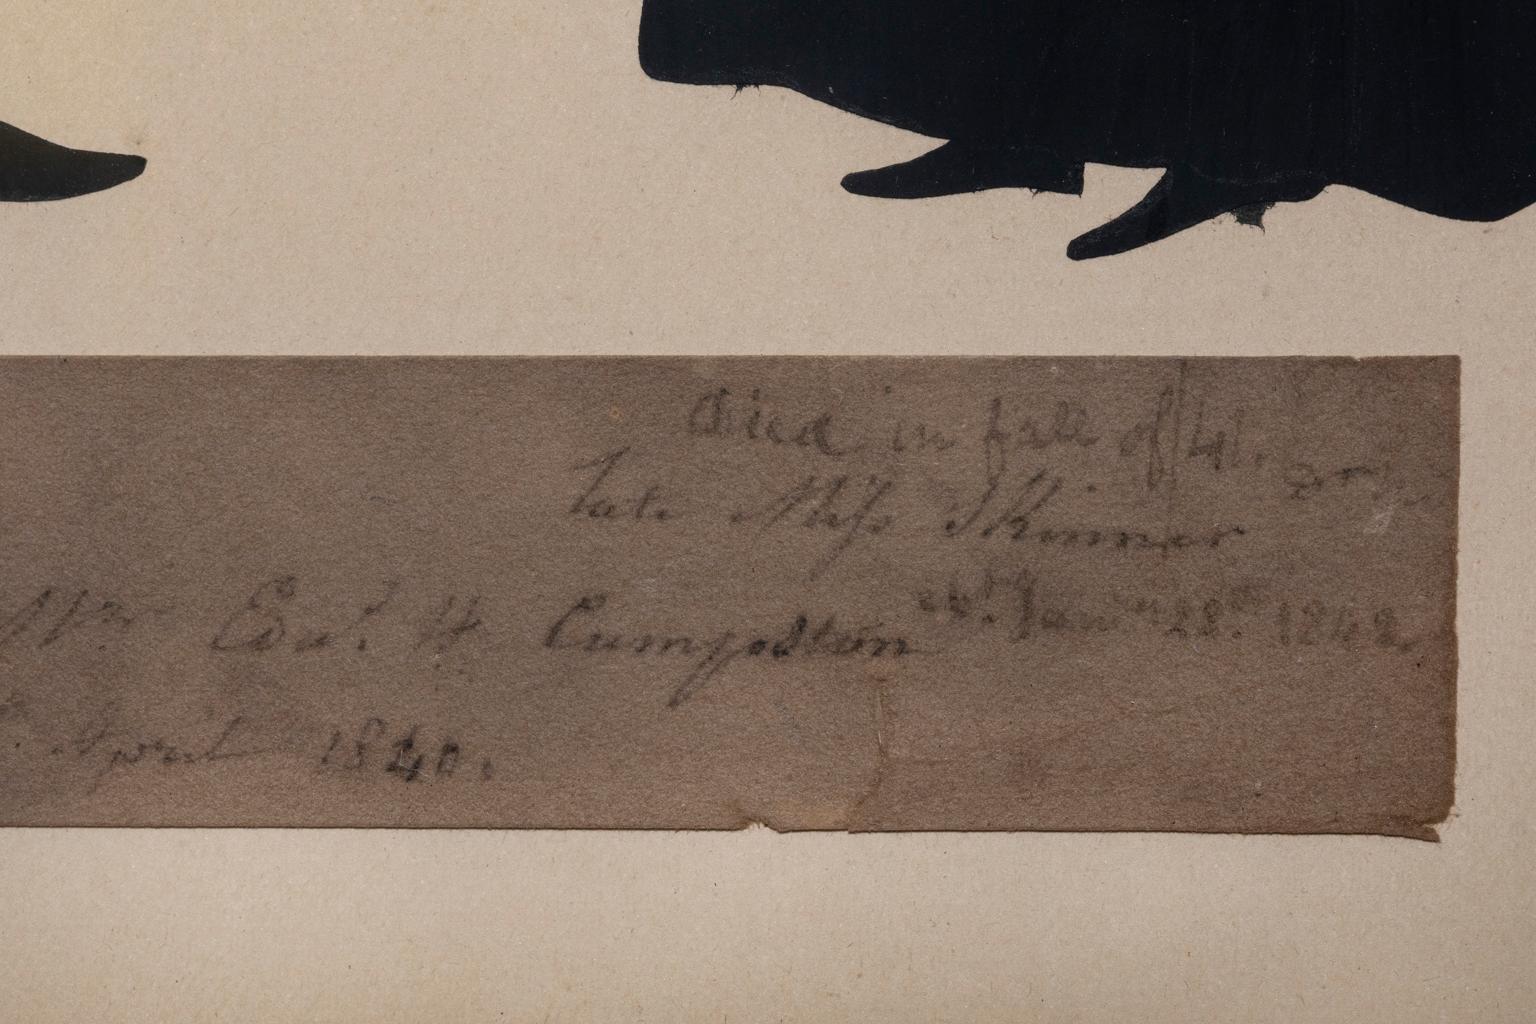 Died in fall of 41.
late Miss Skinner
Mr Edw. H. Cumpston ob. Jany 28th 1842.
April 1840.